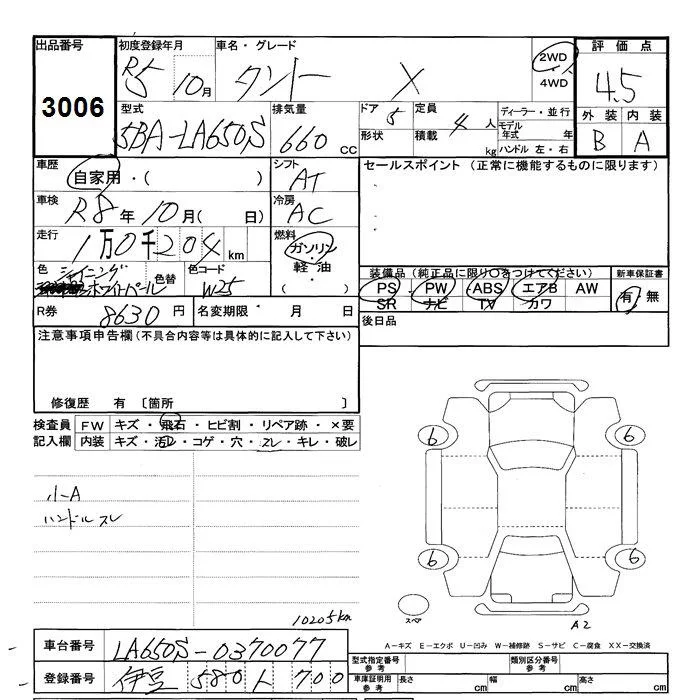 出品番号 初度登録年月 車名・グレード 評価点
3006 R5 10月 タント X 2WD 4WD 4.5
型式 排気量 ドア 定員 ディーラー・並行 外装 内装
5BA-LA650S 660 CC 5 4人 モデル年式 年 B A
形状 積載 kg ハンドル 左・右
車歴 シフト セールスポイント (正常に機能するものに限ります)
自家用・( ) AT
車検 冷房
R8年10月( 日) AC
走行 燃料
1万0千204km ガソリン・
軽油・
色 シャイニングホワイトパール 色替 色コード W25
装備品(純正品に限り○をつけてください) 新車保証書
PS・PW・ABS エアB AW 有・無
SR ナビ TV カワ
R券 8630円 名変期限 月 日 後日品
注意事項申告欄(不具合内容等は具体的に記入して下さい)
修復歴 有〔箇所 〕
検査員 FW キズ・飛石・ヒビ割・リペア跡・×要
記入欄 内装 キズ・汚レ・コゲ・穴・スレ・キレ・破レ
6 6
小-A
ハンドル スレ
6 6
スペア A2
10205km
A-キズ E-エクボ U-凹み W-補修跡 S-サビ C-腐食 XX-交換済
車台番号 LA650S-0370077 型式指定番号 参考 類別区分番号 参考
登録番号 伊豆 580 ん 700 車庫証明用 参考 長さ cm 幅 cm 高さ cm